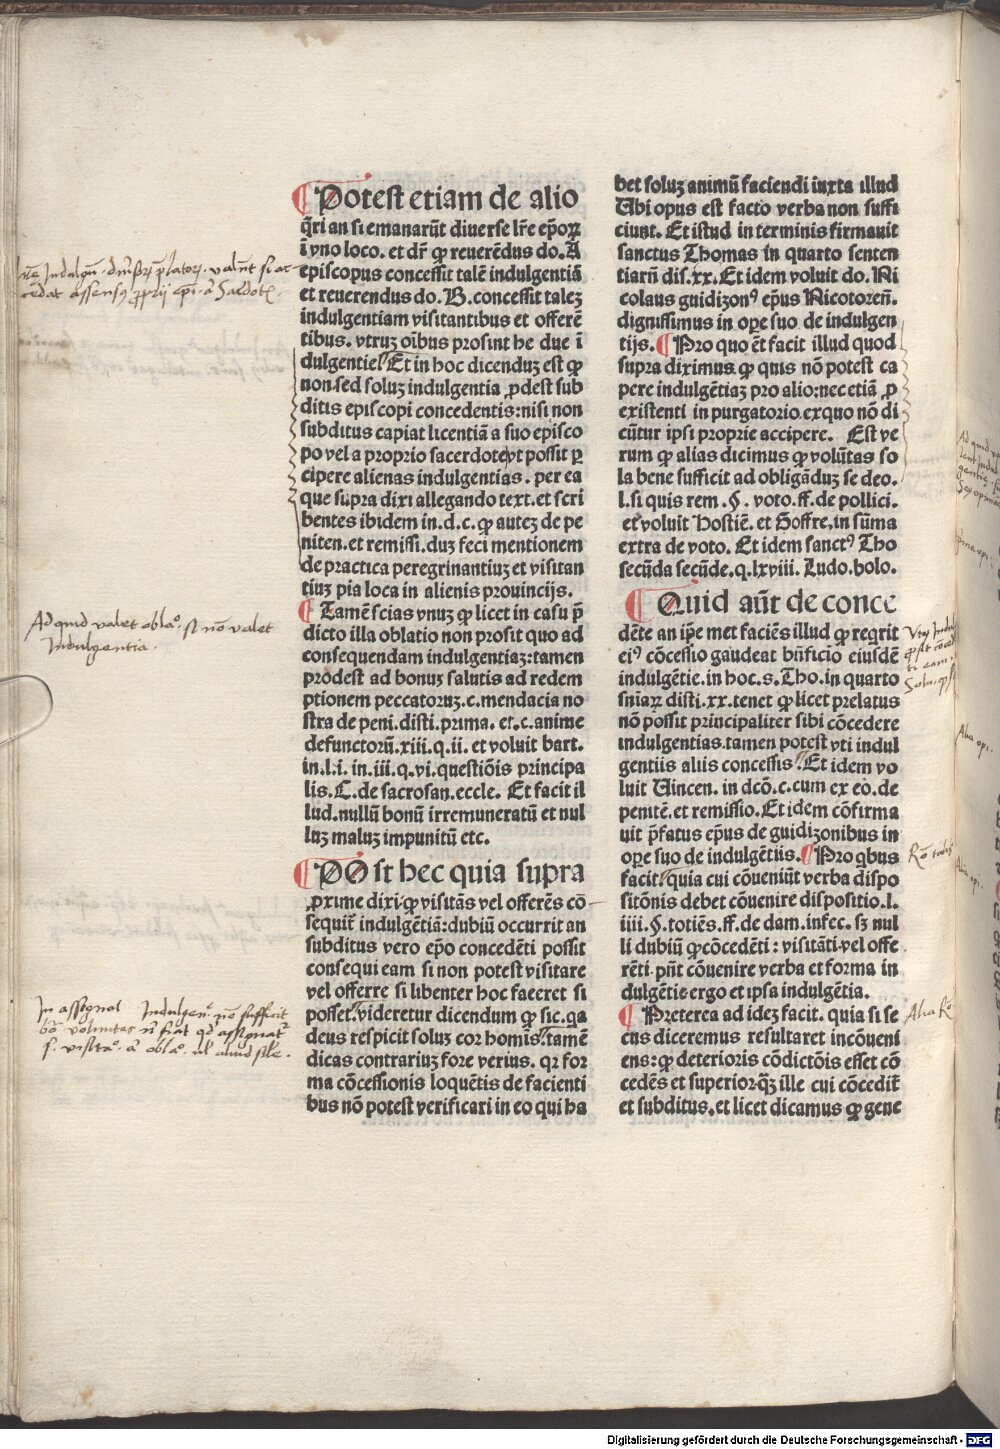 Potest etiam de alio
q̄ri an si emanarūt diuerse lr̄e ep̄oꝝ
ī vno loco. et dr̄ ꝙ reuerēdus do. A
episcopus concessit talē indulgentiā
et reuerendus do. B. concessit talez
indulgentiam visitantibus et offerē
tibus. vtruȝ oībus prosint he due ī
dulgentie Et in hoc dicenduȝ est ꝙ
non. sed soluȝ indulgentia ꝓdest sub
ditis episcopi concedentis: nisi non
subditus capiat licentiā a suo episco
po vel a proprio sacerdote vt possit ꝑ
cipere alienas indulgentias. per ea
que supra dixi allegando text. et scri
bentes ibidem in. d. c. ꝙ autez de pe
niten. et remissi. duȝ feci mentionem
de practica peregrinantiuȝ et visitan
tiuȝ pia loca in alienis prouincijs.
Tamē scias vnuȝ ꝙ licet in casu p̄
dicto illa oblatio non prosit quo ad
consequendam indulgentiaȝ: tamen
prodest ad bonuȝ salutis ad redem
ptionem peccatoruȝ. c. mendacia no
stra de peni. disti. prima. et. c. anime
defunctorū. xiii. q. ii. et voluit bart.
in. l. i. in. iii. q. vi. questiōis principa
lis. C. de sacrosan. eccle. Et facit il
lud. nullū bonū irremuneratū et nul
luȝ maluȝ impunitū etc.
POst hec quia supra
ꝓxime dixi ꝙ visitās vel offerēs cō
sequit̄ indulgētiā: dubiū occurrit an
subditus vero ep̄o concedēti possit
consequi eam si non potest visitare
vel offerre si libenter hoc faceret si
posset. videretur dicendum ꝙ sic. qa
deus respicit soluȝ cor homis. tamē
dicas contrariuȝ fore verius. qꝛ for
ma cōcessionis loquētis de facienti
bus nō potest verificari in eo qui ha
bet soluȝ animū faciendi iuxta illud
Ubi opus est facto verba non suffi
ciunt. Et istud in terminis firmauit
sanctus Thomas in quarto senten
tiarū dis. xx. Et idem voluit do. Ni
colaus guidizonꝰ ep̄us Nicotoreñ.
dignissimus in oꝑe suo de indulgen
tijs. Pro quo ēt facit illud quod
supra diximus ꝙ quis nō potest ca
pere indulgētiaȝ pro alio: nec etiā ꝓ
existenti in purgatorio. exquo nō di
cūtur ipsi proprie accipere. Est ve
rum ꝙ alias dicimus ꝙ volūtas so
la bene sufficit ad obligāduȝ se deo.
l. si quis rem. §. voto. ff. de pollici.
et voluit Hostiē. et Goffre. in sūma
extra de voto. Et idem sanctꝰ Tho
secūda secūde. q. lxviii. Ludo. bolo.
Quid aūt de conce
dēte an ip̄e met faciēs illud ꝙ reqrit
eiꝰ cōcessio gaudeat bñficio eiusdē
indulgētie. in hoc. s. Tho. in quarto
sniaꝝ disti. xx. tenet ꝙ licet prelatus
nō possit principaliter sibi cōcedere
indulgentias. tamen potest vti indul
gentiis aliis concessis. Et idem vo
luit Uincen. in dcō. c. cum ex eo. de
penitē. et remissio. Et idem cōfirma
uit p̄fatus ep̄us de guidizonibus in
oꝑe suo de indulgētiis. Pro qbus
facit. quia cui cōueniūt verba dispo
sitōnis debet cōuenire dispositio. l.
iiii. §. totiēs. ff. de dam. infec. sȝ nul
li dubiū ꝙ cōcedēti: visitāti vel offe
rēti pn̄t cōuenire verba et forma in
dulgētie ergo et ipsa indulgētia.
Preterea ad ideȝ facit. quia si se
cus diceremus resultaret incōueni
ens: ꝙ deterioris cōdictōis esset cō
cedēs et superior qꝫ ille cui cōcedit̄
et subditus. et licet dicamus ꝙ gene
Ad quid valet oblaᵒ. si nō valet
Indulgentia.
Digitalisierung gefördert durch die Deutsche Forschungsgemeinschaft - DFG